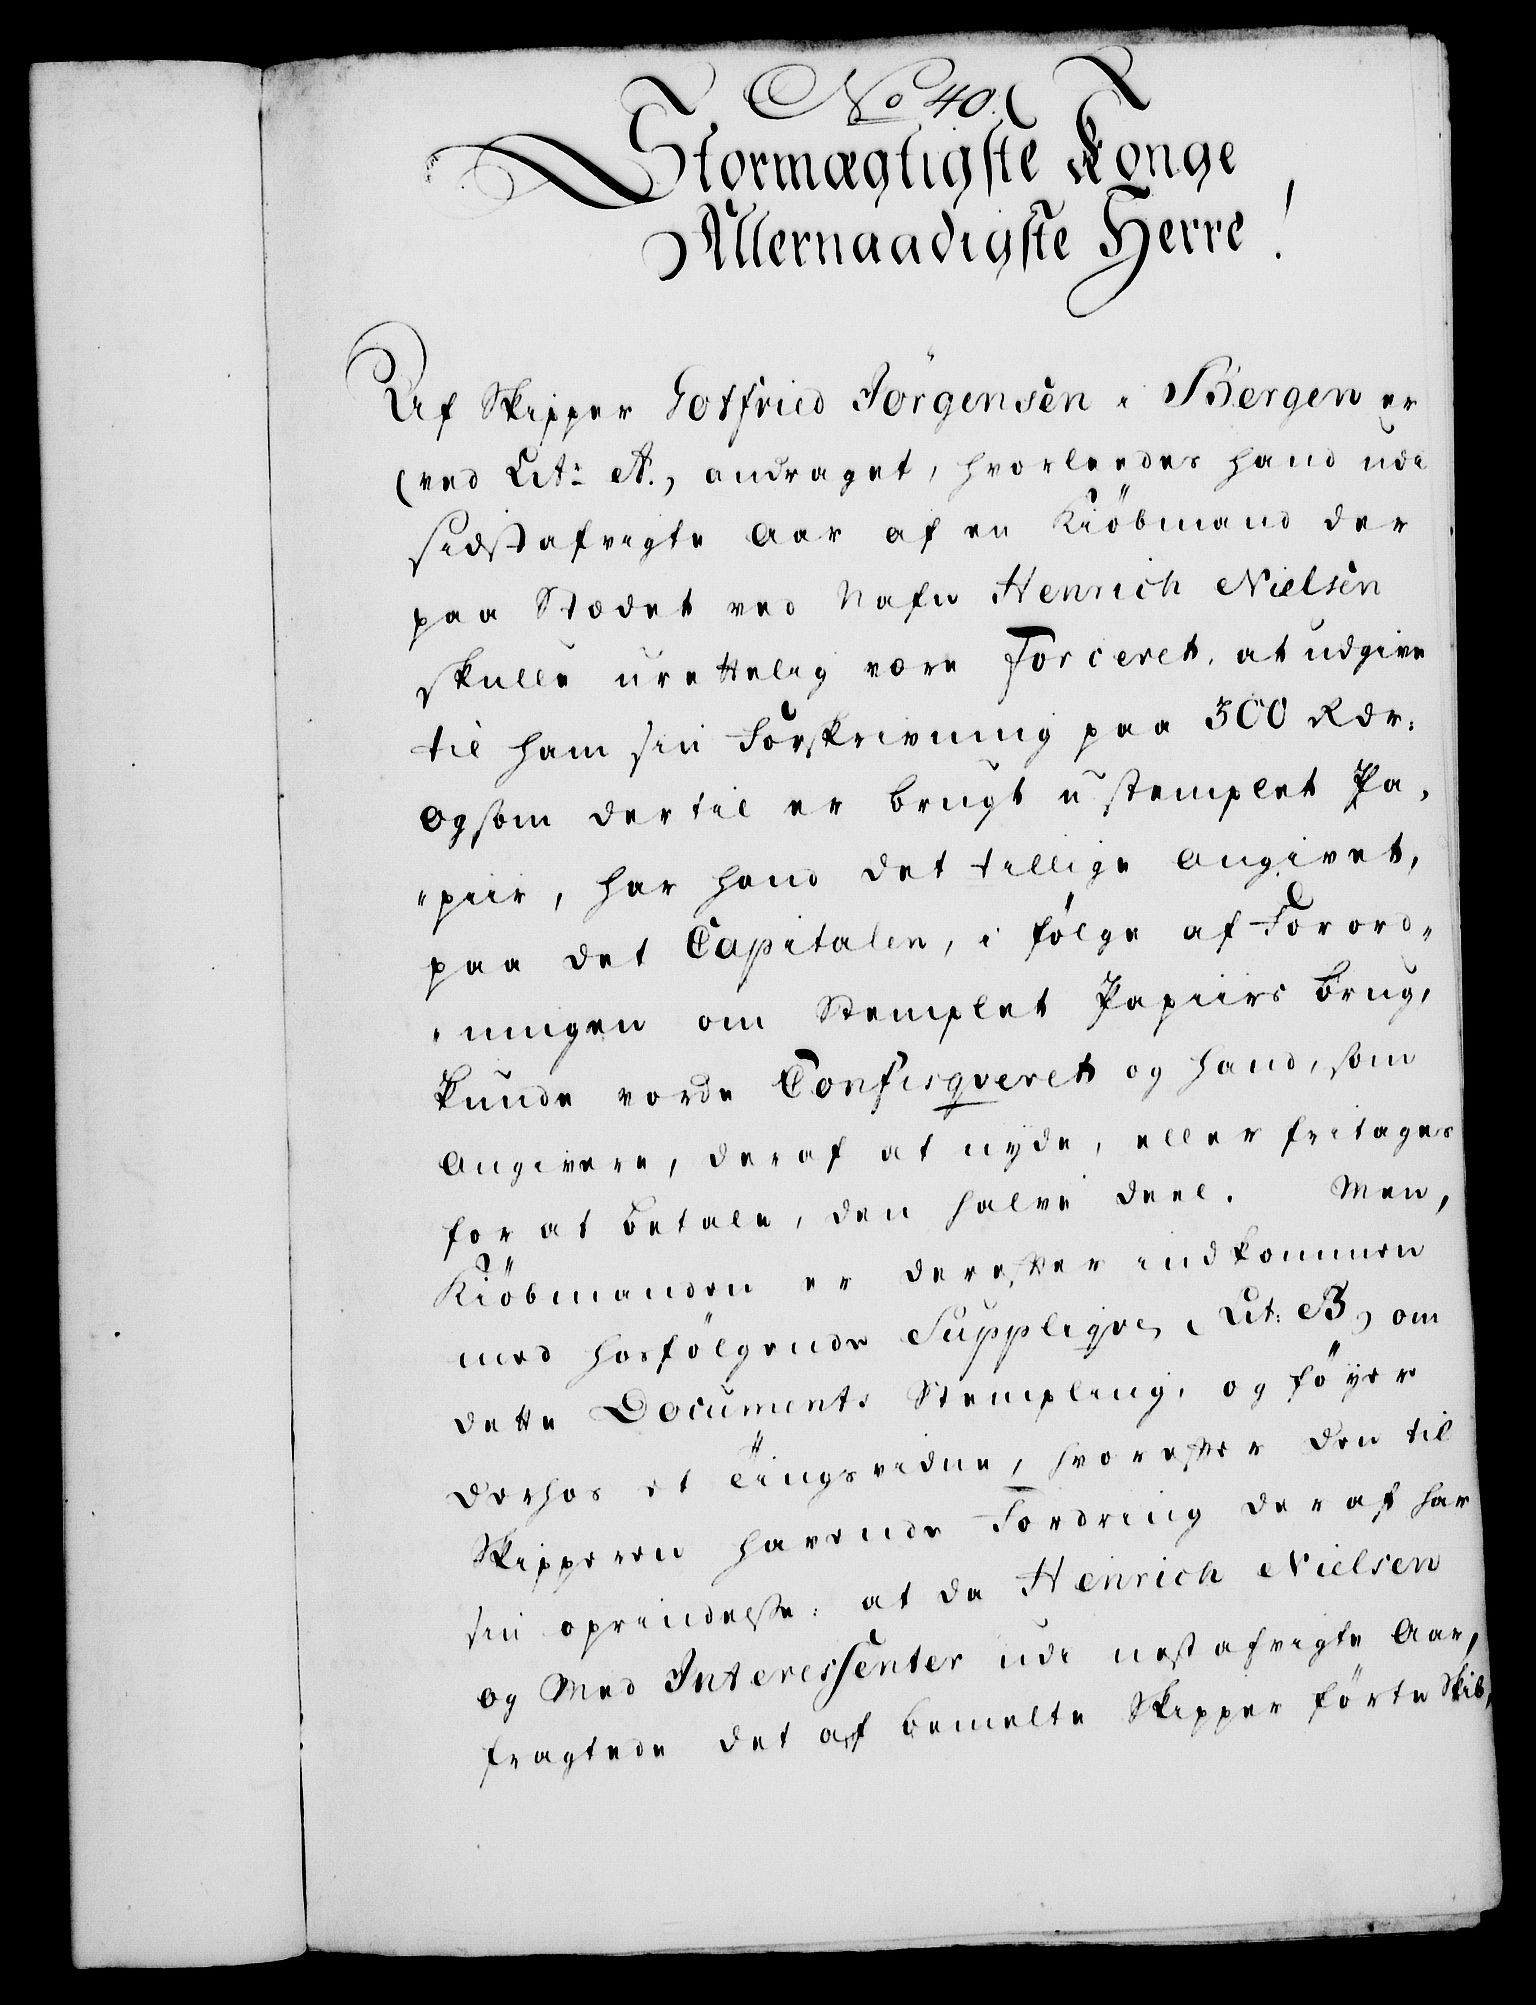 No 40.
Stormægtigste Konge
Allernaadigste Herre!
Af Skipper Gotfried Jörgensen i Bergen er
(ved Litr: A.) andraget, hvorleedes hand udi
sidstafvigte Aar af en Kiöbmand der
paa Stædet ved Nafn Henrich Nielsen
skulle urettelig være Forceret, at udgive
til ham sin Forskrivning paa 300 Rdr.
og som dertil er brugt ustemplet Pa,
"piir, har hand det tillige Angivet,
paa det Capitalen, i fölge af Forord„
„ningen om Stemplet Papiirs Brug,
kunde vorde Confisqveret og hand, som
Angivere, deraf at nyde, eller fritages
for at betale, den halve deel. Men,
Kiöbmanden er derefter indkommen
med hosfölgende Suppliqve (Lit: B) om
dette Documents Stempling, og föyer
derhos et Tingsvidne, hvorefter den til
Skipperen havende Fordring deraf har
sin oprindelse: at da Henrich Nielsen
og Med Interessenter udi nestafvigte Aar,
fragtede det af bemelte Skipper förte Skib,